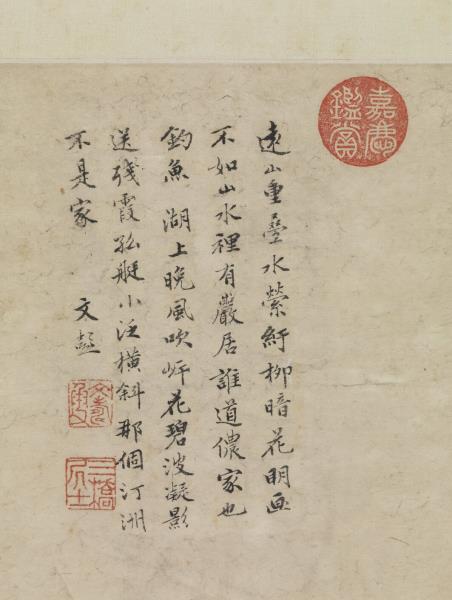 嘉慶鑑賞
遠山重疊水縈紆柳暗花明画
不如山水裡有巖居誰道儂家也
釣魚 湖上晚風吹岸花碧波凝影
送殘霞孤艇小泛橫斜那個汀洲
不是家 文彭
文壽承氏
三橋居士